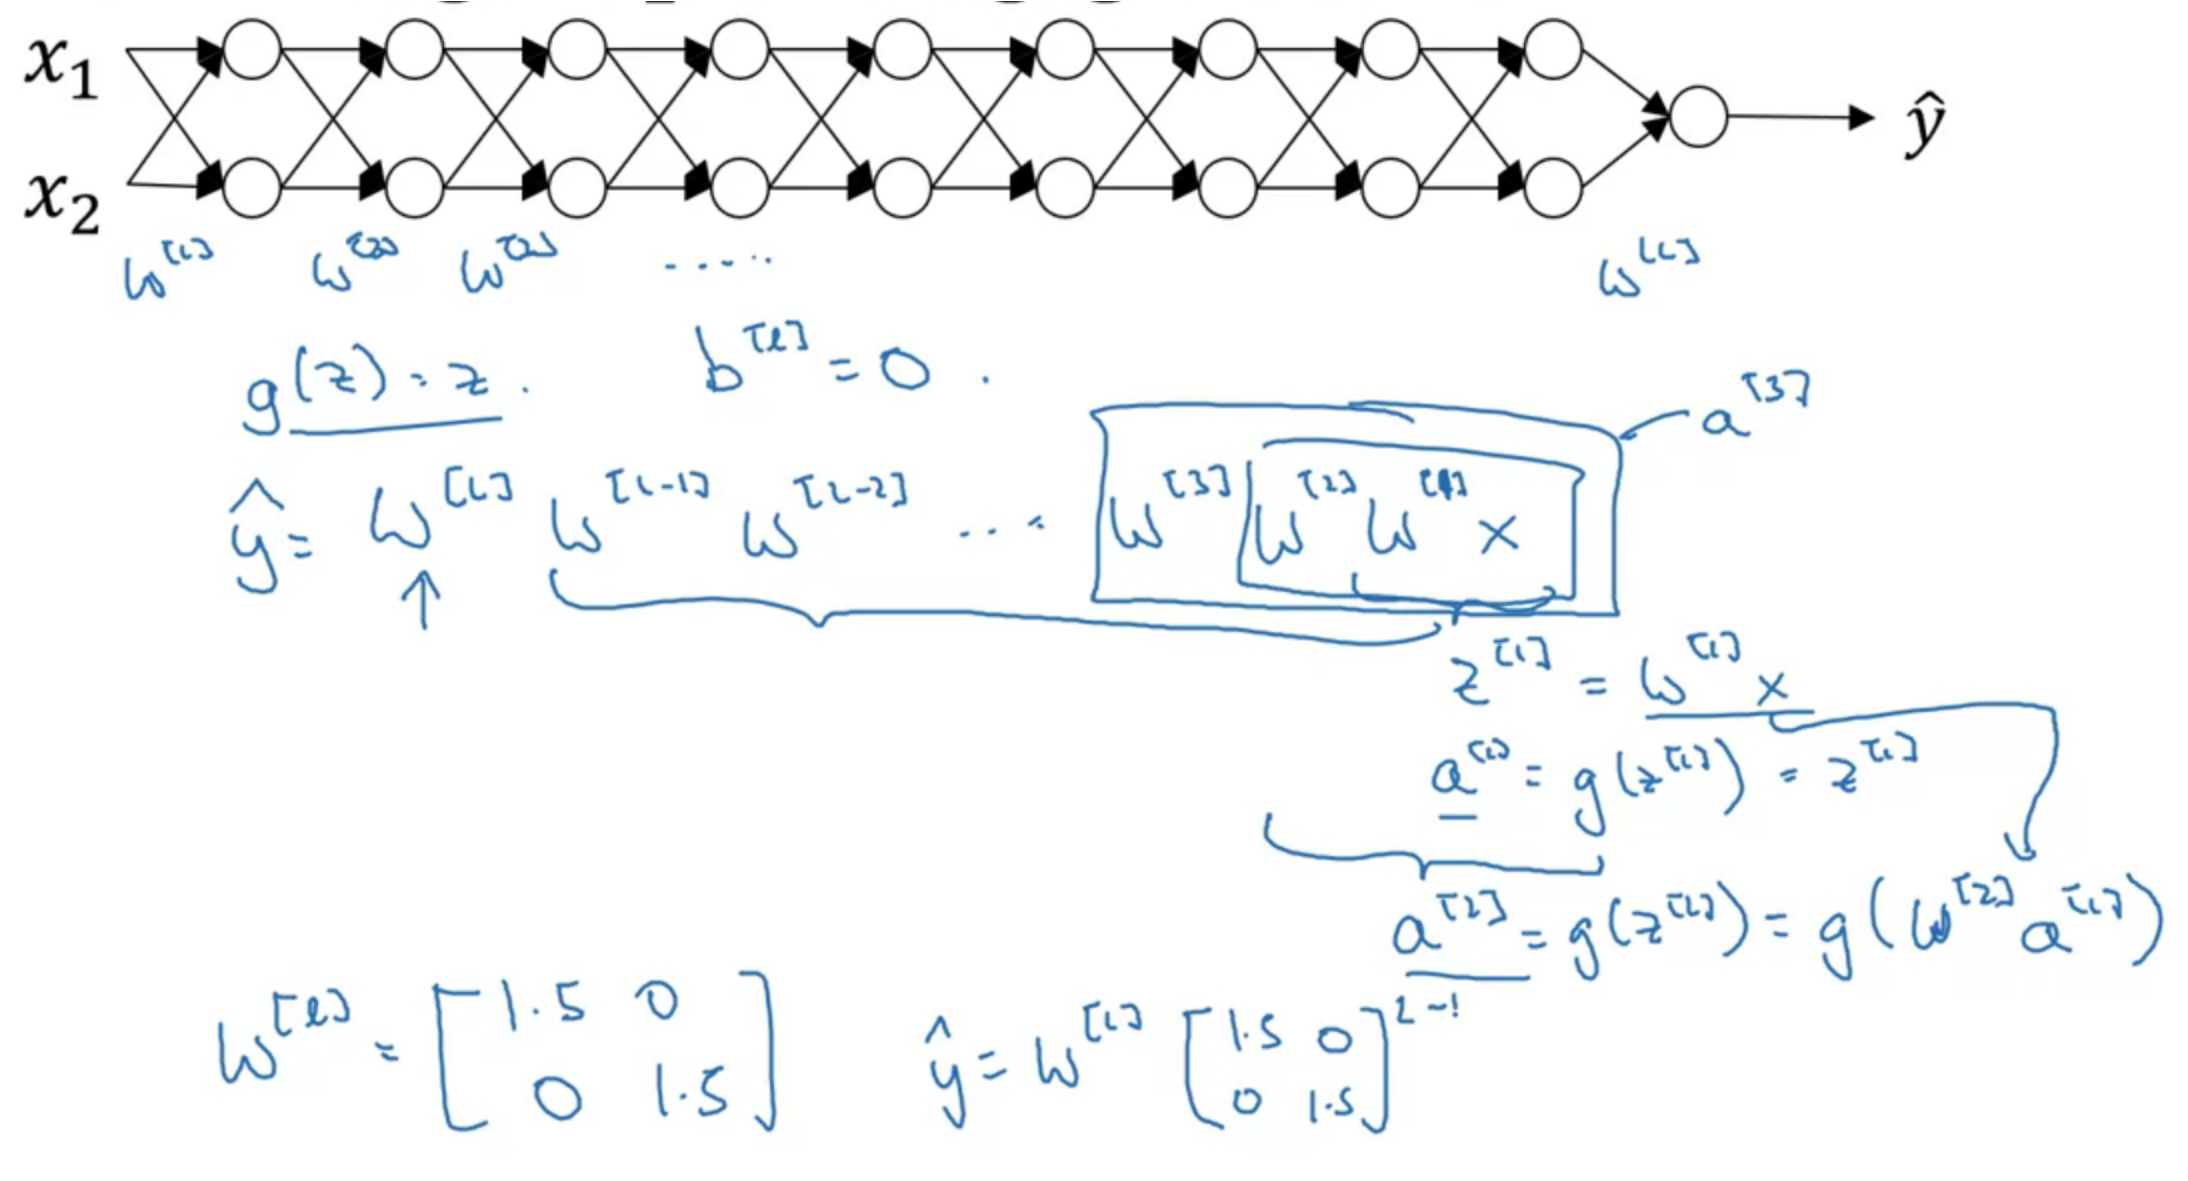 x₁
x₂
ŷ
w^[1] w^[2] w^[3] ..... w^[L]
g(z) = z . b^[l] = 0 .
a^[3]
ŷ = w^[L] w^[L-1] w^[L-2] ... w^[3] w^[2] w^[1] x
z^[1] = w^[1] x
a^[1] = g(z^[1]) = z^[1]
a^[2] = g(z^[2]) = g(w^[2] a^[1])
w^[l] = [1.5 0
0 1.5]
ŷ = w^[L] [1.5 0
0 1.5]^L-1